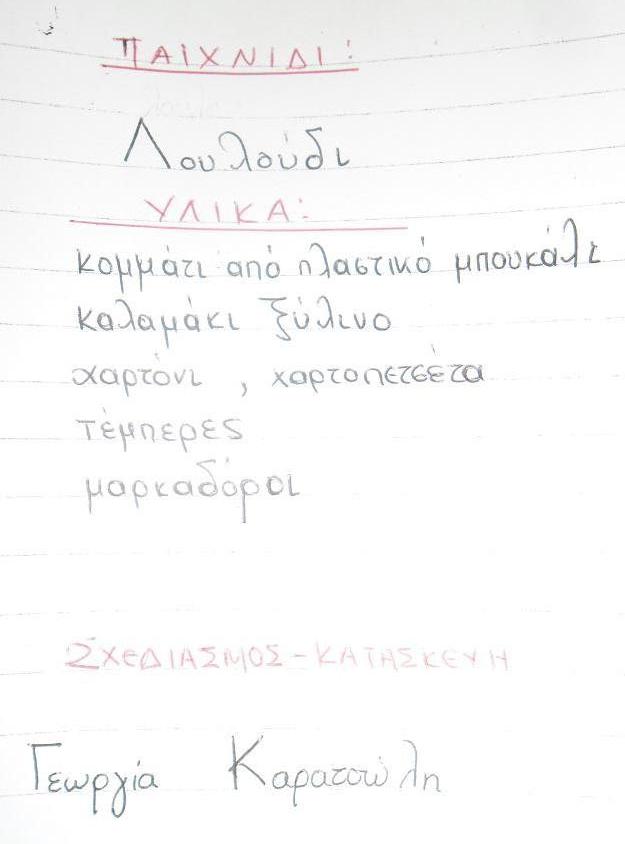 ΠΑΙΧΝΙΔΙ:
Λουλούδι
ΥΛΙΚΑ:
κομμάτι από πλαστικό μπουκάλι
καλαμάκι ξύλινο
χαρτόνι , χαρτοπετσέτα
τέμπερες
μαρκαδόροι
ΣΧΕΔΙΑΣΜΟΣ - ΚΑΤΑΣΚΕΥΗ
Γεωργία Καρατσώλη